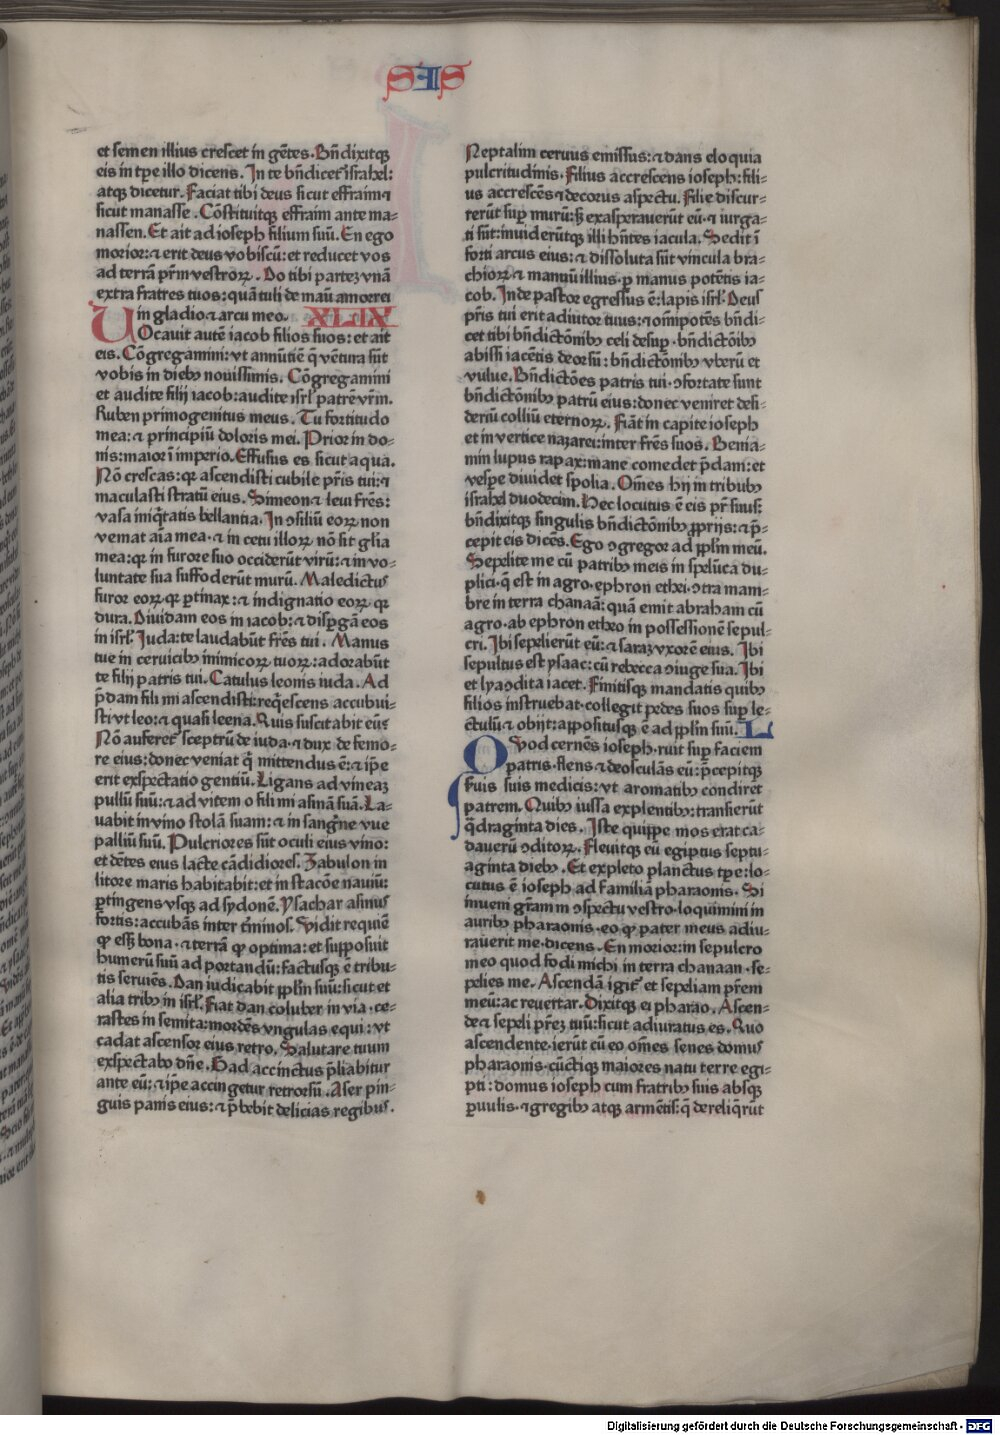 SIS
et semen illius crescet in gētes. Bn̄dixitqꝫ
eis in tp̄e illo dicens. In te bn̄dicet᷑ israhel:
atqꝫ dicetur. Faciat tibi deus sicut effraim ⁊
sicut manasse. Cōstituitqꝫ effraim ante ma-
nassen. Et ait ad ioseph filium suū. En ego
morior: ⁊ erit deus vobiscū: et reducet vos
ad terrā pr̄m vestroꝝ. Do tibi partez vnā
extra fratres tuos: quā tuli de manu amorrei
in gladio ⁊ arcu meo. XLIX
VOcauit autē iacob filios suos: et ait
eis. Cōgregamini: vt annūtiē q̄ vētura sūt
vobis in diebꝫ nouissimis. Cōgregamini
et audite filij iacob: audite isrl̄ patrē vr̄m.
Ruben primogenitus meus. Tu fortitudo
mea: ⁊ principiū doloris mei. Prior in do-
nis: maior ī imperio. Effusus es sicut aqua.
Nō crescas: qꝛ ascendisti cubile pr̄is tui: ⁊
maculasti stratū eius. Simeon ⁊ leui fr̄es:
vasa iniq̄tatis bellantia. In ɔsiliū eoꝝ non
veniat aīa mea. ⁊ in cetu illoꝝ nō sit gl̄ia
mea: qꝛ in furore suo occiderūt virū: ⁊ in vo-
luntate sua suffoderūt murū. Maledictus
furor eoꝝ qꝛ ꝑtinax: ⁊ indignatio eoꝝ qꝛ
dura. Diuidam eos in iacob: ⁊ disꝑgā eos
in isrl̄. Juda: te laudabūt fr̄es tui. Manus
tue in ceruicibꝫ inimicoꝝ tuoꝝ: adorabūt
te filij patris tui. Catulus leonis iuda. Ad
p̄dam fili mi ascendisti: req̄escens accubui-
sti vt leo: ⁊ quasi leena. Quis suscitabit eū?
Nō auferet᷑ sceptrū de iuda. ⁊ dux de femo-
re eius: donec veniat q̄ mittendus ē: ⁊ ip̄e
erit exspectatio gentiū. Ligans ad vineaꝫ
pullū suū: ⁊ ad vitem o fili mi asinā suā. La-
uabit in vino stolā suam: ⁊ in sanḡne vue
palliū suū. Pulcriores sūt oculi eius vino:
et dētes eius lacte cādidiores. Zabulon in
litore maris habitabit: et in stacōe nauiū:
ꝑtingens vsqꝫ ad sydonē. Ysachar asinus
fortis: accubās inter t̄minos. Vidit requiē
ꝙ esꝫ bona. ⁊ terrā ꝙ optima: et supposuit
humerū suū ad portandū: factusqꝫ ē tribu-
tis seruiēs. Dan iudicabit ppl̄m suū: sicut et
alia tribꝫ in isrl̄. Fiat dan coluber in via. ce-
rastes in semita: mordēs vngulas equi: vt
cadat ascensor eius retro. Salutare tuum
exspectabo dn̄e. Gad accinctus p̄liabitur
ante eū: ⁊ ip̄e accingetur retrorsū. Aser pin-
guis panis eius: ⁊ p̄bebit delicias regibus.
Neptalim ceruus emissus: ⁊ dans eloquia
pulcritudinis. Filius accrescens ioseph: fili-
us accrescēs ⁊ decorus aspectu. Filie discur-
rerūt suꝑ murū: sꝫ exasperauerūt eū. ⁊ iurga-
ti sūt: inuiderūtqꝫ illi hn̄tes iacula. Sedit ī
forti arcus eius: ⁊ dissoluta sūt vincula bra-
chioꝝ ⁊ manuū illius. ꝑ manus potētis ia-
cob. Inde pastor egressus ē: lapis isrl̄. Deus
pr̄is tui erit adiutor tuus: ⁊ om̄ipotēs bn̄di-
cet tibi bn̄dictōnibꝫ celi desuꝑ. bn̄dictōibꝫ
abissi iacētis deorsū: bn̄dictōnibꝫ vberū et
vulue. Bn̄dictōes patris tui. ɔfortate sunt
bn̄dictōnibꝫ patrū eius: donec veniret desi-
deriū colliū eternoꝝ. Fiāt in capite ioseph
et in vertice nazarei: inter fr̄es suos. Benia-
min lupus rapax: mane comedet p̄dam: et
vesꝑe diuidet spolia. Om̄es hij in tribubꝫ
israhel duodecim. Hec locutus ē eis pr̄ suus:
bn̄dixitqꝫ singulis bn̄dictōnibꝫ ꝓprijs: ⁊ p̄-
cepit eis dicēs. Ego ɔgregor ad ppl̄m meū.
Sepelite me cū patribꝫ meis in spelūca du-
plici. q̄ est in agro. ephron ethei. ɔtra mam-
bre in terra chanaā: quā emit abraham cū
agro. ab ephron etheo in possessionē sepul-
cri. Ibi sepelierūt eū: ⁊ saraꝫ vxorē eius. Ibi
sepultus est ysaac: cū rebecca ɔiuge sua. Ibi
et lya ɔdita iacet. Finitisqꝫ mandatis quibꝫ
filios instruebat. collegit pedes suos suꝑ le-
ctulū ⁊ obijt: appositusqꝫ ē ad ppl̄m suū. L
QVod cernēs ioseph. ruit suꝑ faciem
patris. flens ⁊ deosculās eū: p̄cepitqꝫ
seruis suis medicis: vt aromatibꝫ condirēt
patrem. Quibꝫ iussa explentibꝫ: transierūt
q̄draginta dies. Iste quippe mos erat ca-
dauerū ɔditoꝝ. Fleuitqꝫ eū egiptus septu-
aginta diebꝫ. Et expleto planctus tp̄e: lo-
cutus ē ioseph ad familiā pharaonis. Si
inueni gr̄am in ɔspectu vestro. loquimini in
auribꝫ pharaonis. eo ꝙ pater meus adiu-
rauerit me. dicens. En morior: in sepulcro
meo quod fodi michi in terra chanaan. se-
pelies me. Ascendā igit᷑ et sepeliam pr̄em
meū: ac reuertar. Dixitqꝫ ei pharao. Ascen-
de ⁊ sepeli pr̄eꝫ tuū: sicut adiuratus es. Quo
ascendente. ierūt cū eo om̄es senes domus
pharaonis. cūctiqꝫ maiores natu terre egi-
pti: domus ioseph cum fratribꝫ suis absqꝫ
ꝑuulis. ⁊ gregibꝫ atqꝫ armētis: q̄ dereliq̄rūt
Digitalisierung gefördert durch die Deutsche Forschungsgemeinschaft - DFG